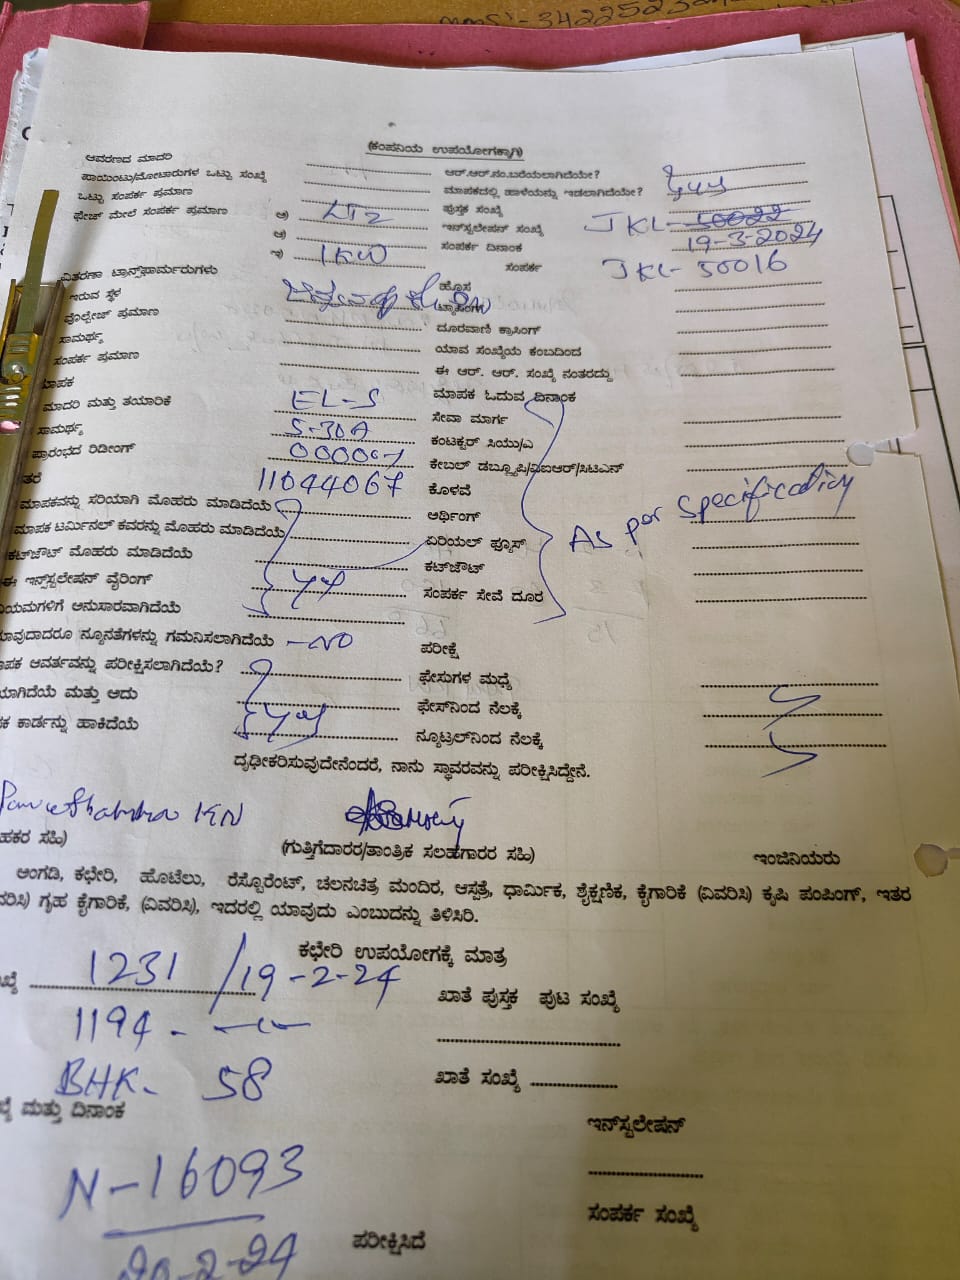 (ಕಂಪನಿಯ ಉಪಯೋಗಕ್ಕಾಗಿ)
ಆವರಣದ ಮಾದರಿ ಆರ್.ಆರ್.ನಂ.ಬರೆಯಲಾಗಿದೆಯೇ?
ಪಾಯಿಂಟು/ಮೋಟಾರುಗಳ ಒಟ್ಟು ಸಂಖ್ಯೆ ಮಾಪಕದಲ್ಲಿ ಹಾಳೆಯನ್ನು ಇಡಲಾಗಿದೆಯೇ?
ಒಟ್ಟು ಸಂಪರ್ಕ ಪ್ರಮಾಣ ಪುಸ್ತಕ ಸಂಖ್ಯೆ
ಫೇಜ್ ಮೇಲೆ ಸಂಪರ್ಕ ಪ್ರಮಾಣ ಅ) LT2 ಇನ್‌ಸ್ಟಲೇಷನ್ ಸಂಖ್ಯೆ JKL-10022
ಆ) ಸಂಪರ್ಕ ದಿನಾಂಕ 19-3-2024
ಇ) 1KW ಸಂಪರ್ಕ JKL-50016
ವಿತರಣಾ ಟ್ರಾನ್ಸ್‌ಫಾರ್ಮರುಗಳು ಹೊಸ
ಇರುವ ಸ್ಥಳ
ವೊಲ್ಟೇಜ್ ಪ್ರಮಾಣ ದೂರವಾಣಿ ಕ್ರಾಸಿಂಗ್
ಸಾಮರ್ಥ್ಯ ಯಾವ ಸಂಖ್ಯೆಯ ಕಂಬದಿಂದ
ಸಂಪರ್ಕ ಪ್ರಮಾಣ ಈ ಆರ್. ಆರ್. ಸಂಖ್ಯೆ ನಂತರದ್ದು
ಮಾಪಕ ಮಾಪಕ ಓದುವ ದಿನಾಂಕ
ಮಾದರಿ ಮತ್ತು ತಯಾರಿಕೆ EL-S ಸೇವಾ ಮಾರ್ಗ
ಸಾಮರ್ಥ್ಯ 5-30A ಕಂಟಕ್ಟರ್ ಸಿಯು/ಎ
ಪ್ರಾರಂಭದ ರಿಡೀಂಗ್ 000001 ಕೇಬಲ್ ಡಬ್ಲ್ಯೂಪಿ/ವಿಐಆರ್/ಸಿಟಿಎಸ್
ತರೆ 11044067 ಕೊಳವೆ
ಮಾಪಕವನ್ನು ಸರಿಯಾಗಿ ಮೊಹರು ಮಾಡಿದೆಯೆ ಆರ್ಥಿಂಗ್ As per specification
ಮಾಪಕ ಟರ್ಮಿನಲ್ ಕವರನ್ನು ಮೊಹರು ಮಾಡಿದೆಯೆ ಏರಿಯಲ್ ಫ್ಯೂಸ್
ಕಟ್‌ಔಟ್ ಮೊಹರು ಮಾಡಿದೆಯೆ ಕಟ್‌ಔಟ್
ಈ ಇನ್‌ಸ್ಟಲೇಷನ್ ವೈರಿಂಗ್ ಸಂಪರ್ಕ ಸೇವೆ ದೂರ
ಯಮಗಳಿಗೆ ಅನುಸಾರವಾಗಿದೆಯೆ
ಯಾವುದಾದರೂ ನ್ಯೂನತೆಗಳನ್ನು ಗಮನಿಸಲಾಗಿದೆಯೆ -NO ಪರೀಕ್ಷೆ
ಪಕ ಆವರ್ತವನ್ನು ಪರೀಕ್ಷಿಸಲಾಗಿದೆಯೆ? ಫೇಸುಗಳ ಮಧ್ಯೆ
ಯಾಗಿದೆಯೆ ಮತ್ತು ಅದು ಫೇಸ್‌ನಿಂದ ನೆಲಕ್ಕೆ
ಕ ಕಾರ್ಡನ್ನು ಹಾಕಿದೆಯೆ ನ್ಯೂಟ್ರಲ್‌ನಿಂದ ನೆಲಕ್ಕೆ
ದೃಢೀಕರಿಸುವುದೇನೆಂದರೆ, ನಾನು ಸ್ಥಾವರವನ್ನು ಪರೀಕ್ಷಿಸಿದ್ದೇನೆ.
ಹಕರ ಸಹಿ) (ಗುತ್ತಿಗೆದಾರರ/ತಾಂತ್ರಿಕ ಸಲಹಗಾರರ ಸಹಿ) ಇಂಜಿನಿಯರು
ಅಂಗಡಿ, ಕಛೇರಿ, ಹೊಟೆಲು, ರೆಸ್ಟೊರೆಂಟ್, ಚಲನಚಿತ್ರ ಮಂದಿರ, ಆಸ್ಪತ್ರೆ, ಧಾರ್ಮಿಕ, ಶೈಕ್ಷಣಿಕ, ಕೈಗಾರಿಕೆ (ವಿವರಿಸಿ) ಕೃಷಿ ಪಂಪಿಂಗ್, ಇತರ
ವರಿಸಿ) ಗೃಹ ಕೈಗಾರಿಕೆ, (ವಿವರಿಸಿ), ಇದರಲ್ಲಿ ಯಾವುದು ಎಂಬುದನ್ನು ತಿಳಿಸಿರಿ.
ಕಛೇರಿ ಉಪಯೋಗಕ್ಕೆ ಮಾತ್ರ
ಖ್ಯೆ 1231 /19-2-24 ಖಾತೆ ಪುಸ್ತಕ ಪುಟ ಸಂಖ್ಯೆ
1194 -
BHK- 58 ಖಾತೆ ಸಂಖ್ಯೆ
ಖ್ಯೆ ಮತ್ತು ದಿನಾಂಕ ಇನ್‌ಸ್ಟಲೇಷನ್
N-16093
ಸಂಪರ್ಕ ಸಂಖ್ಯೆ
20-2-24 ಪರೀಕ್ಷಿಸಿದೆ